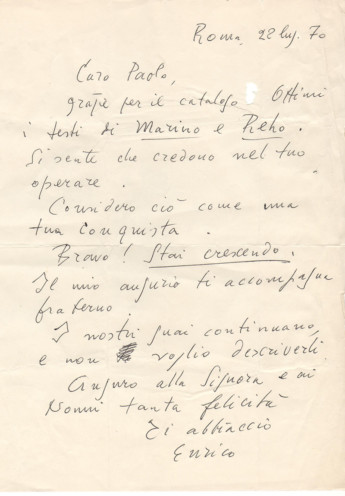 Roma, 22 lug. 70
Caro Paolo,
grazie per il catalogo. Ottimi
i testi di Marino e
Si sente che credono nel tuo
operare.
Considero ciò come una
tua conquista.
Bravo! Stai crescendo.
Il mio augurio ti accompagna
fraterno.
I nostri guai continuano,
e non voglio descriverli.
Auguro alla Signora e ai
Nonni tanta felicità
Ti abbraccio
Enrico